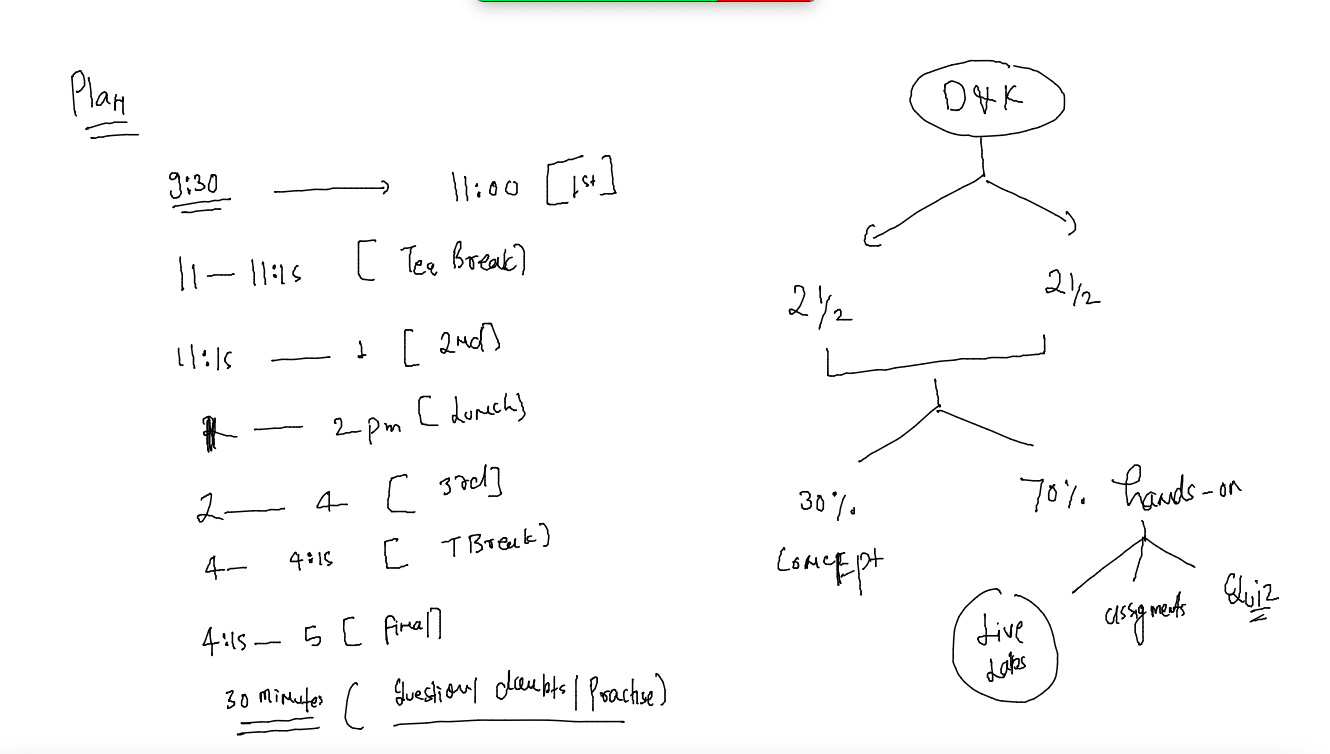 Plan
9:30 → 11:00 [1st]
11 — 11:15 [Tea Break]
11:15 — 1 [2nd]
1 — 2 pm [Lunch]
2 — 4 [3rd]
4 — 4:15 [T Break]
4:15 — 5 [final]
30 minutes (Question/ doubts / Practise)
D & K
2 1/2
2 1/2
30%.
Concept
70%. hands-on
Live
Labs
assigments
Quiz